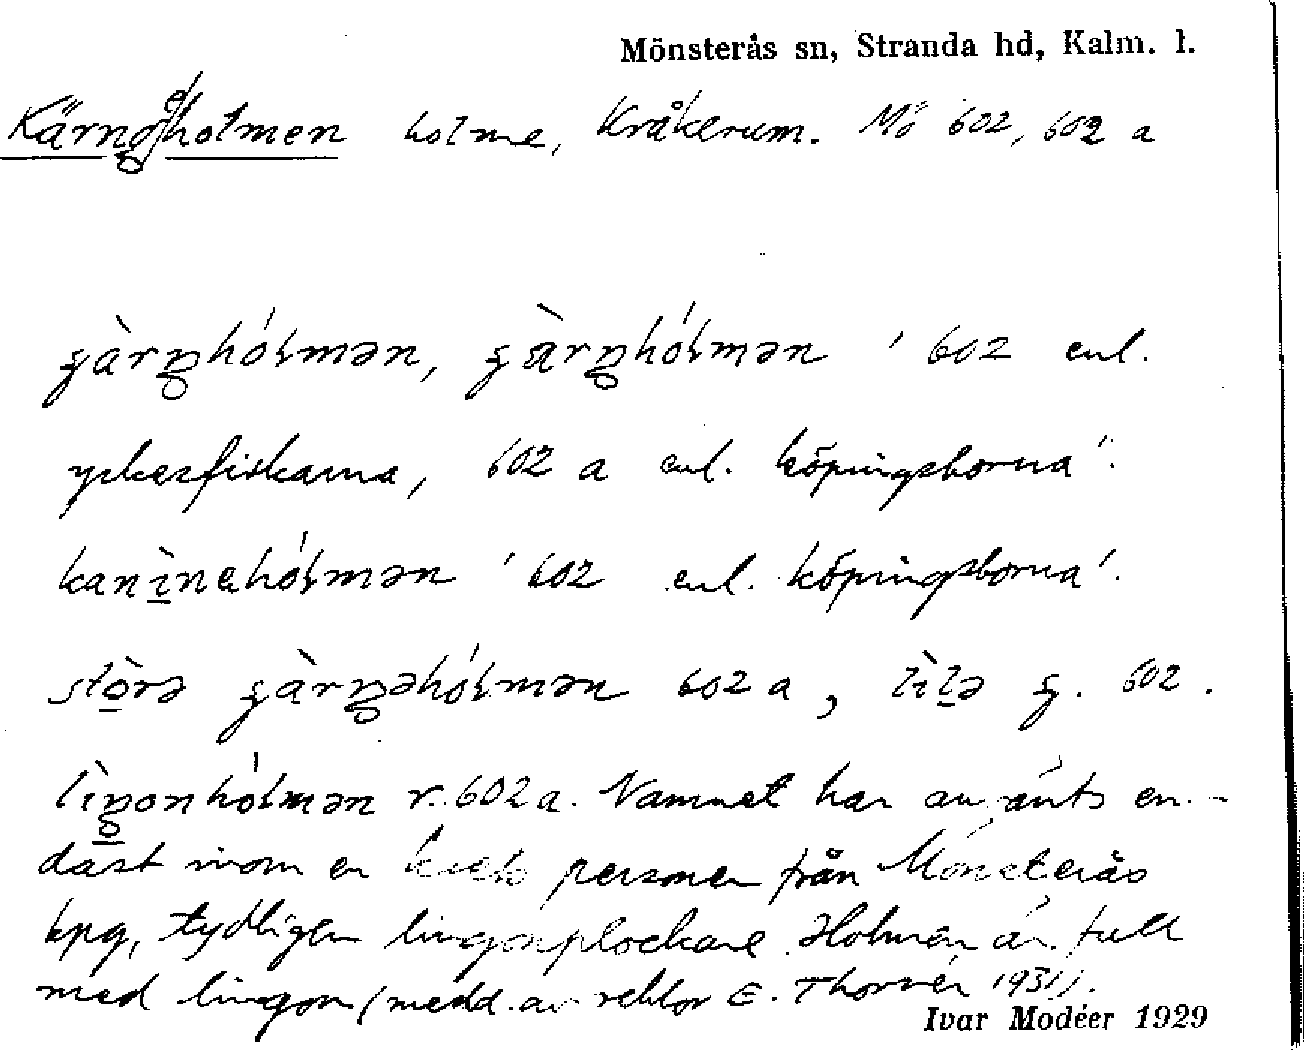 Mönsterås sn, Stranda hd, Kalm. l.
Kärngeholmen holme, Kråkerum. Mö 602, 602 a
gàrŋhólmən, gàrŋhólmən ' 602 enl.
yrkesfiskarna, 602 a enl. köpingsborna'.
kanìnəhólmən ' 602 enl. köpingsborna'.
stòrə gàrŋəhólmən 602 a, lìlə g. 602.
lìŋonhólmən r. 602 a. Namnet har använts en-
dast inom en krets personer från Mönsterås
kpg, tydligen lingonplockare. Holmen är full
med lingon (medd. av rektor E. Thorvér 1931).
Ivar Modéer 1929